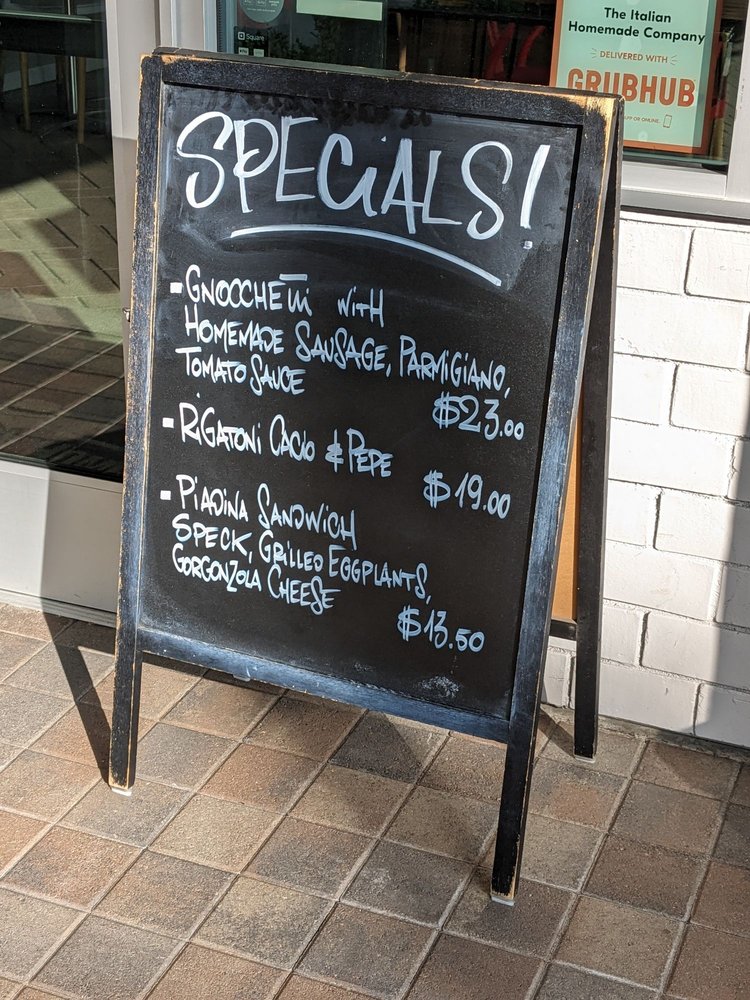 Square
The Italian
Homemade Company
DELIVERED WITH
GRUBHUB
APP OR ONLINE.
SPECiALS!
- GNOCCHETTi WiTH
HOMEMADE SAUSAGE, PARMiGiANO,
TOMATO SAUCE
$23.00
- RiGATONi CACiO & PEPE
$19.00
- PiADiNA SANDWiCH
SPECK, GRiLLED EGGPLANTS,
GORGONZOLA CHEESE
$13.50